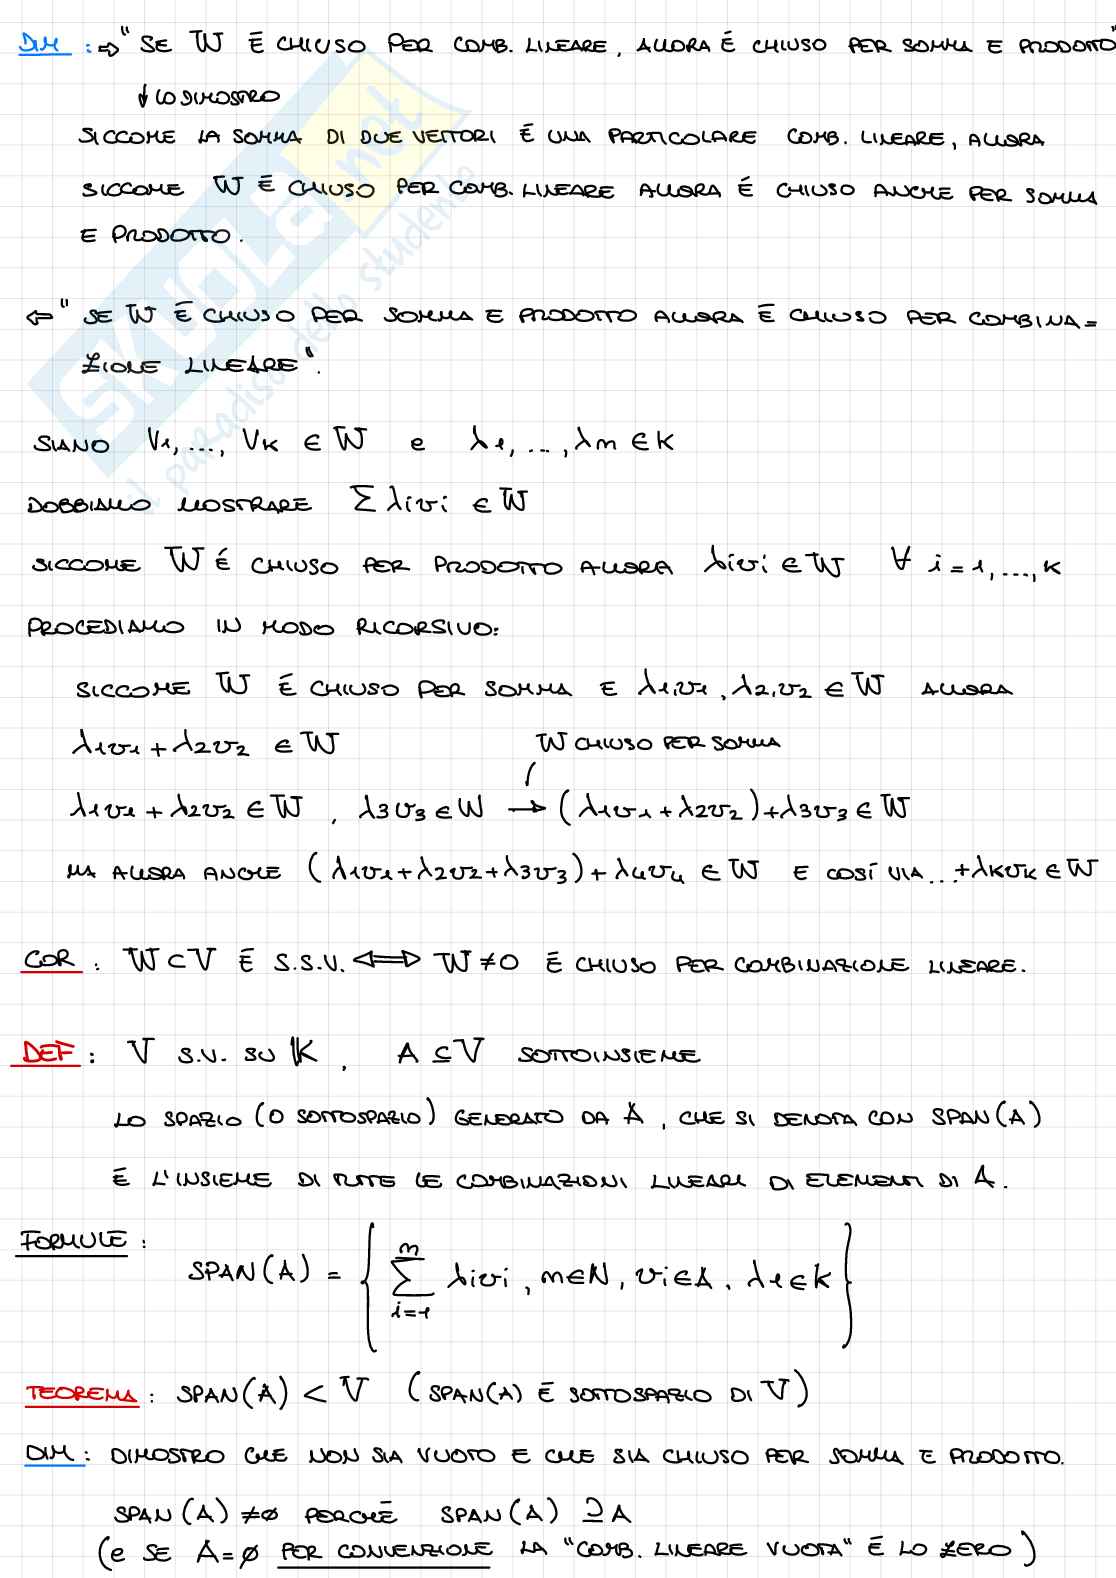 DIM : ⇒ " SE W È CHIUSO PER COMB. LINEARE, ALLORA É CHIUSO PER SOMMA E PRODOTTO"
↓ LO DIMOSTRO
SICCOME LA SOMMA DI DUE VETTORI É UNA PARTICOLARE COMB. LINEARE, ALLORA
SICCOME W È CHIUSO PER COMB. LINEARE ALLORA É CHIUSO ANCHE PER SOMMA
E PRODOTTO.
⇐ " SE W È CHIUSO PER SOMMA E PRODOTTO ALLORA È CHIUSO PER COMBINA=
ZIONE LINEARE".
SIANO V1, ..., VK ∈ W e λ1, ..., λm ∈ K
DOBBIAMO MOSTRARE Σ λivi ∈ W
SICCOME W É CHIUSO PER PRODOTTO ALLORA λivi ∈ W ∀ i = 1, ..., K
PROCEDIAMO IN MODO RICORSIVO:
SICCOME W É CHIUSO PER SOMMA E λ1,v1, λ2,v2 ∈ W ALLORA
λ1v1 + λ2v2 ∈ W W CHIUSO PER SOMMA
λ1v1 + λ2v2 ∈ W , λ3v3 ∈ W → (λ1v1 + λ2v2) + λ3v3 ∈ W
MA ALLORA ANCHE (λ1v1 + λ2v2 + λ3v3) + λ4v4 ∈ W E COSÍ VIA... + λKvK ∈ W
COR : W ⊂ V È S.S.V. ⟺ W ≠ 0 È CHIUSO PER COMBINAZIONE LINEARE.
DEF : V S.V. SU K , A ⊆ V SOTTOINSIEME
LO SPAZIO (O SOTTOSPAZIO) GENERATO DA A , CHE SI DENOTA CON SPAN(A)
È L'INSIEME DI TUTTE LE COMBINAZIONI LINEARI DI ELEMENTI DI A.
FORMULE :
SPAN(A) = { Σ_{i=1}^{m} λivi , m ∈ N , vi ∈ A , λ1 ∈ K }
TEOREMA : SPAN(A) < V (SPAN(A) È SOTTOSPAZIO DI V)
DIM : DIMOSTRO CHE NON SIA VUOTO E CHE SIA CHIUSO PER SOMMA E PRODOTTO.
SPAN(A) ≠ ∅ PERCHÉ SPAN(A) ⊇ A
(e SE A = ∅ PER CONVENZIONE LA "COMB. LINEARE VUOTA" É LO ZERO)
SKUOLA.net
il paradiso dello studente